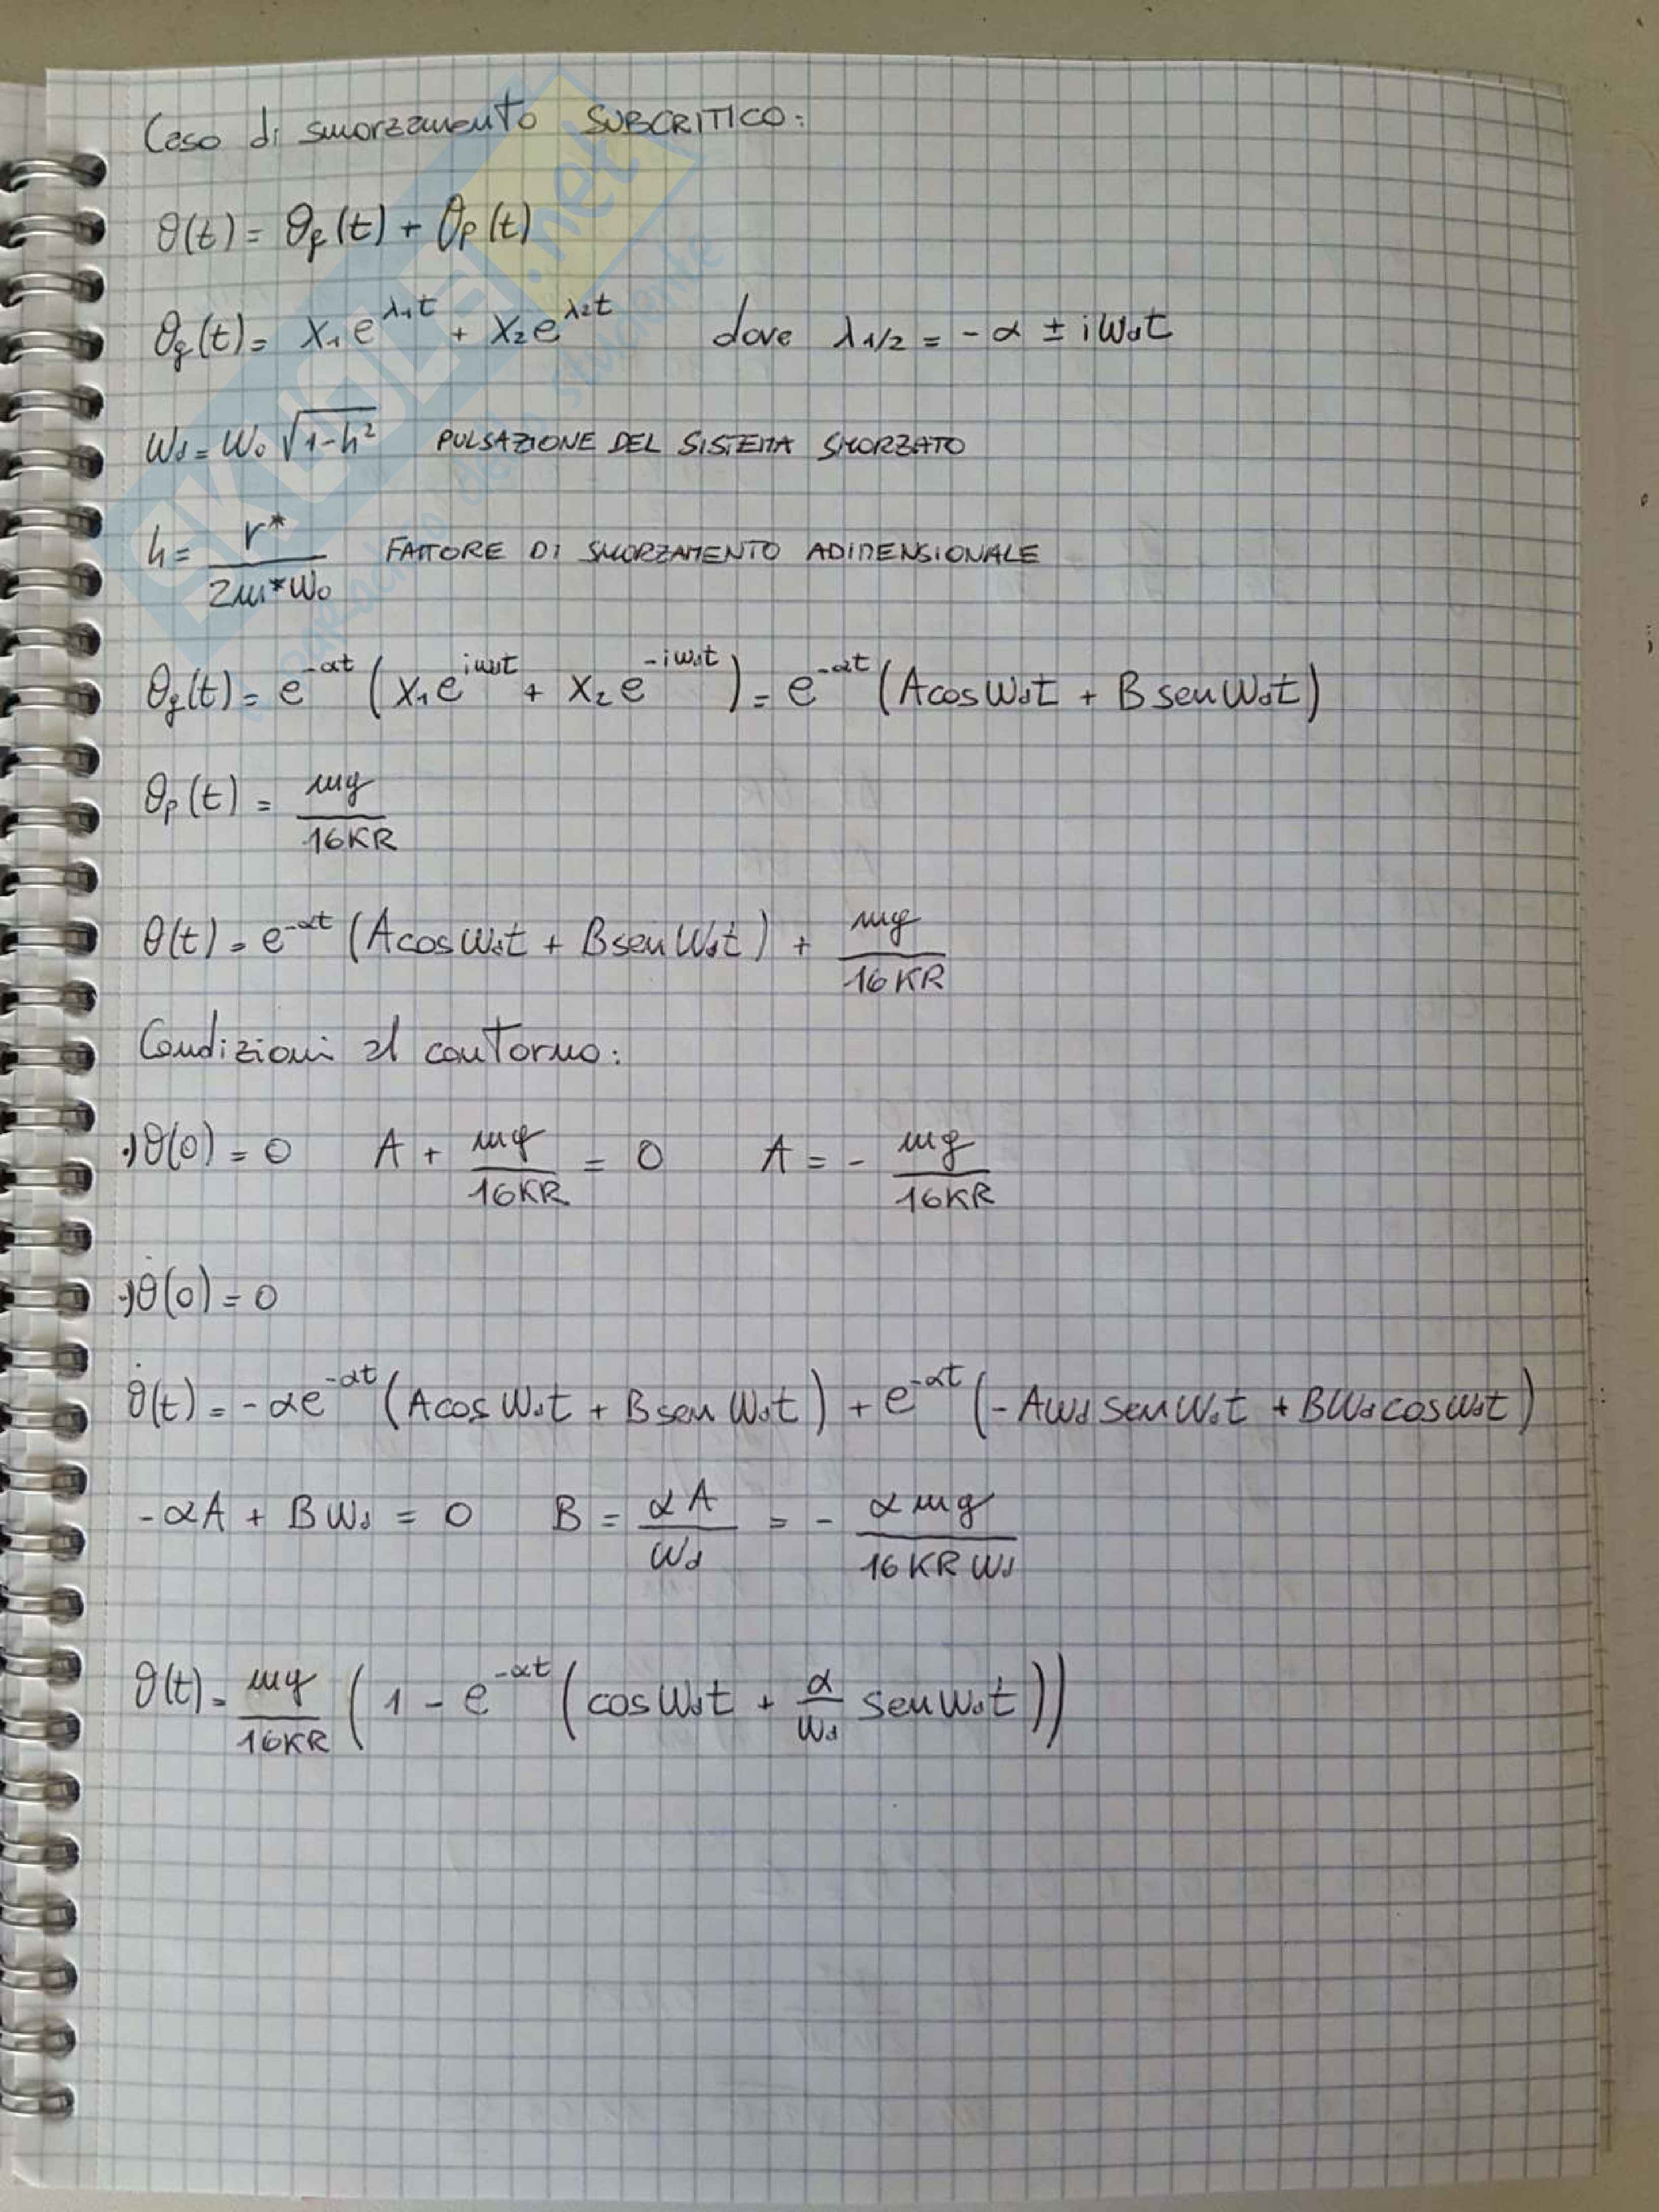 Caso di smorzamento SUBCRITICO:
θ(t) = θg(t) + θp(t)
θg(t) = X₁e^λ₁t + X₂e^λ₂t dove λ1/2 = - α ± iωdt
ωd = ω₀ √(1-h²) PULSAZIONE DEL SISTEMA SMORZATO
h = r* / 2m*ω₀ FATTORE DI SMORZAMENTO ADIMENSIONALE
θg(t) = e^-αt (X₁e^iωdt + X₂e^-iωdt) = e^-αt (Acosωdt + Bsenωdt)
θp(t) = mg / 16KR
θ(t) = e^-αt (Acosωdt + Bsenωdt) + mg / 16KR
Condizioni al contorno:
·) θ(0) = 0 A + mg / 16KR = 0 A = - mg / 16KR
·) θ̇(0) = 0
θ̇(t) = - αe^-αt (Acosωdt + Bsenωdt) + e^-αt (- Aωdsenωdt + Bωdcosωdt)
- αA + Bωd = 0 B = αA / ωd = - αmg / 16KRωd
θ(t) = mg / 16KR (1 - e^-αt (cosωdt + α / ωd senωdt))
SKUOLA.net